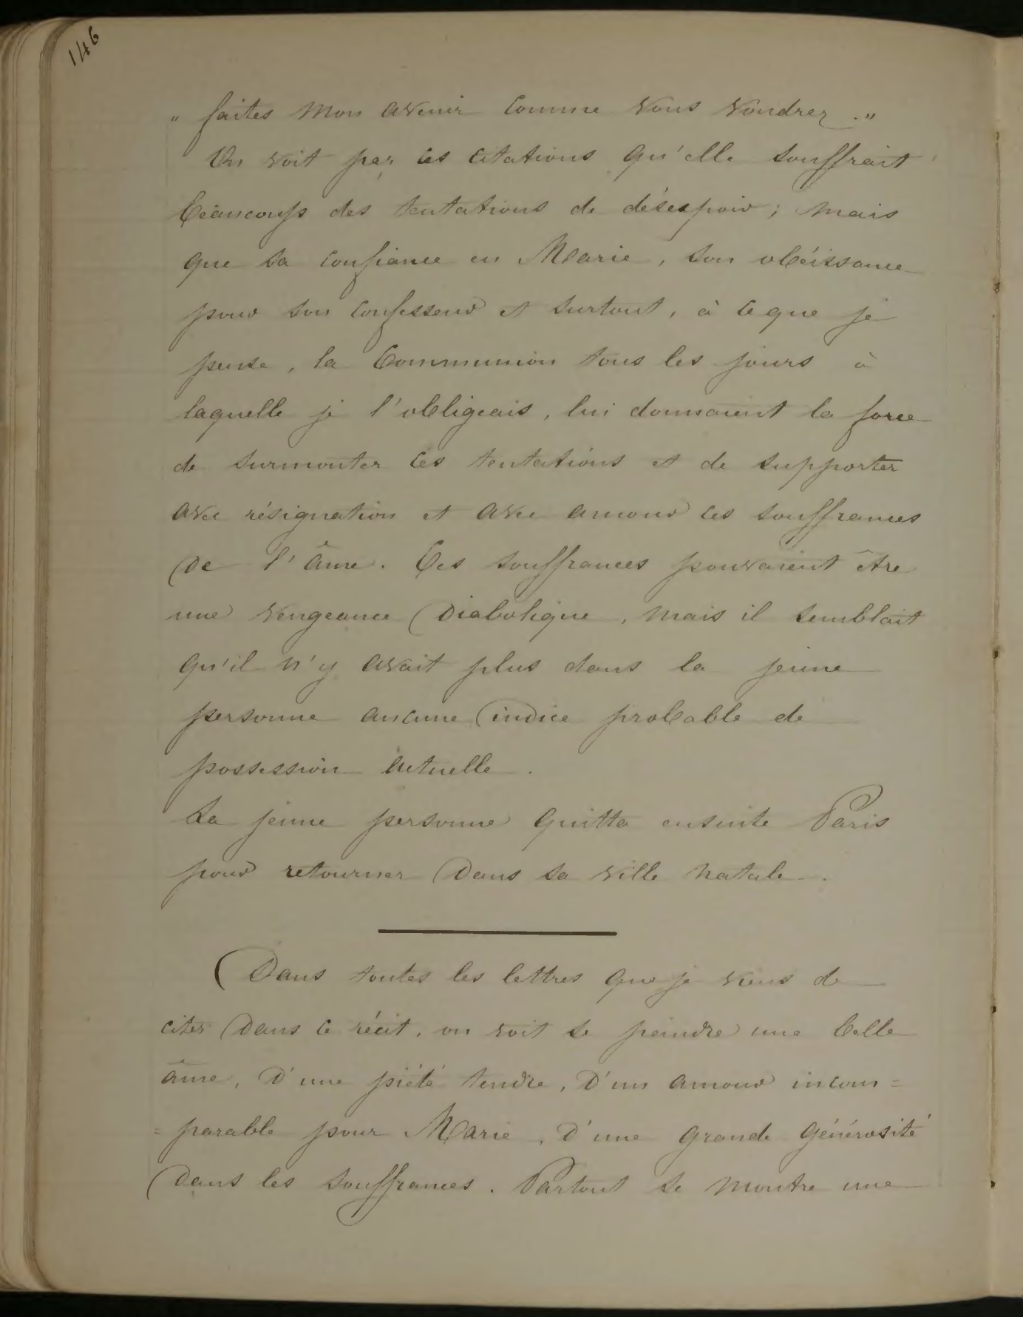 146
" faites mon avenir comme vous voudrez . "
On voit par ces citations qu'elle souffrait
beaucoup des tentations de désespoir ; mais
que sa confiance en Marie , son obéissance
pour son confesseur et surtout , à ce que je
pense , la Communion tous les jours à
laquelle je l'obligeais , lui donnaient la force
de surmonter ces tentations et de supporter
avec résignation et avec amour ces souffrances
de l'âme . Ces souffrances pouvaient être
une vengeance diabolique , mais il semblait
qu'il n'y avait plus dans la jeune
personne aucune indice probable de
possession actuelle .
La jeune personne quitta ensuite Paris
pour retourner dans sa ville natale .
Dans toutes les lettres que je viens de
citer dans ce récit , on voit se peindre une belle
âme , d'une piété tendre , d'un amour incom=
=parable pour Marie , d'une grande générosité
dans les souffrances . Partout se montre une